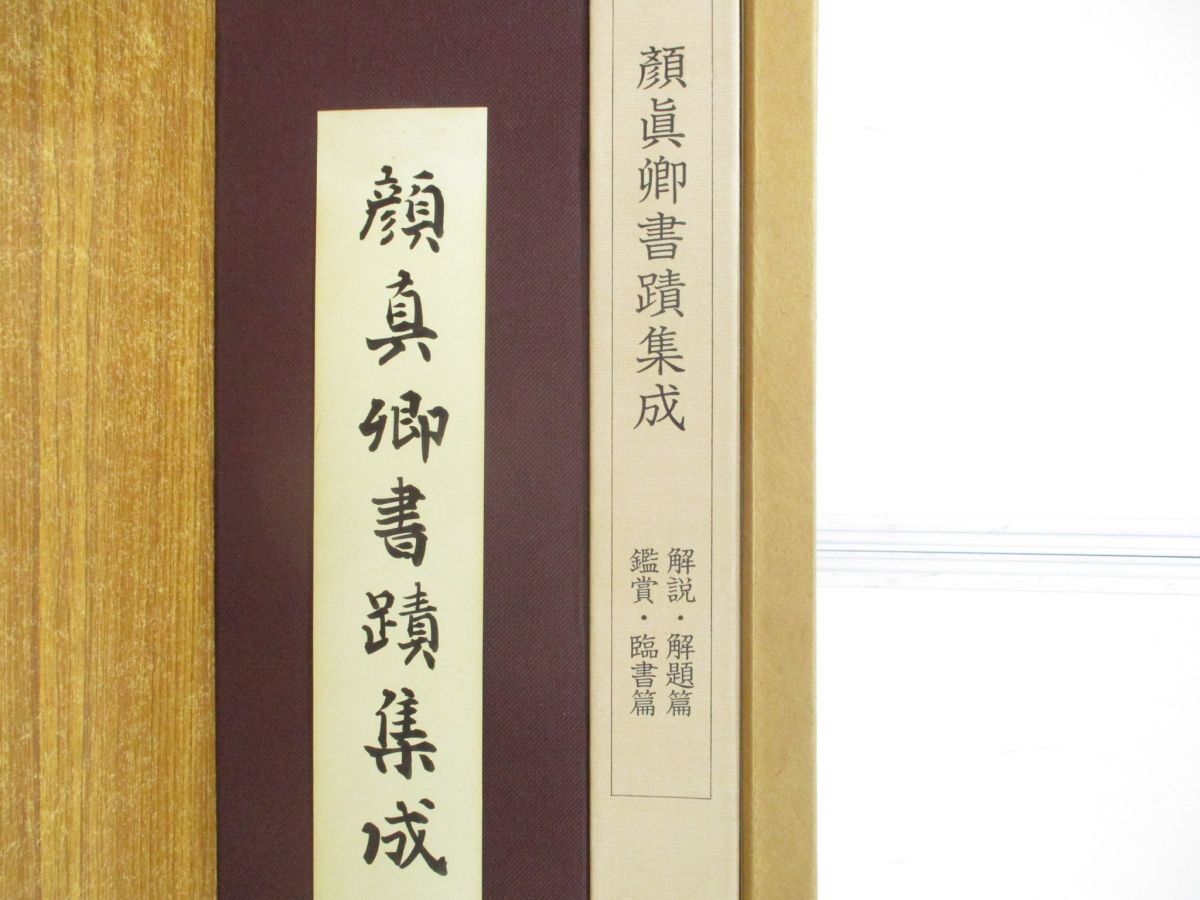 顔真卿書蹟集成
顏眞卿書蹟集成
解説・解題篇
鑑賞・臨書篇